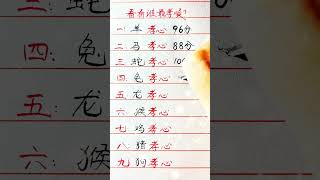 看看谁最孝顺?
一:羊孝心 96分
二:马孝心 88分
三:蛇孝心 10
四:兔孝心
五:龙孝心
六:猴孝心
七:鸡孝心
八:猪孝心
九:狗孝心
三:蛇
四:兔
五:龙
六:猴